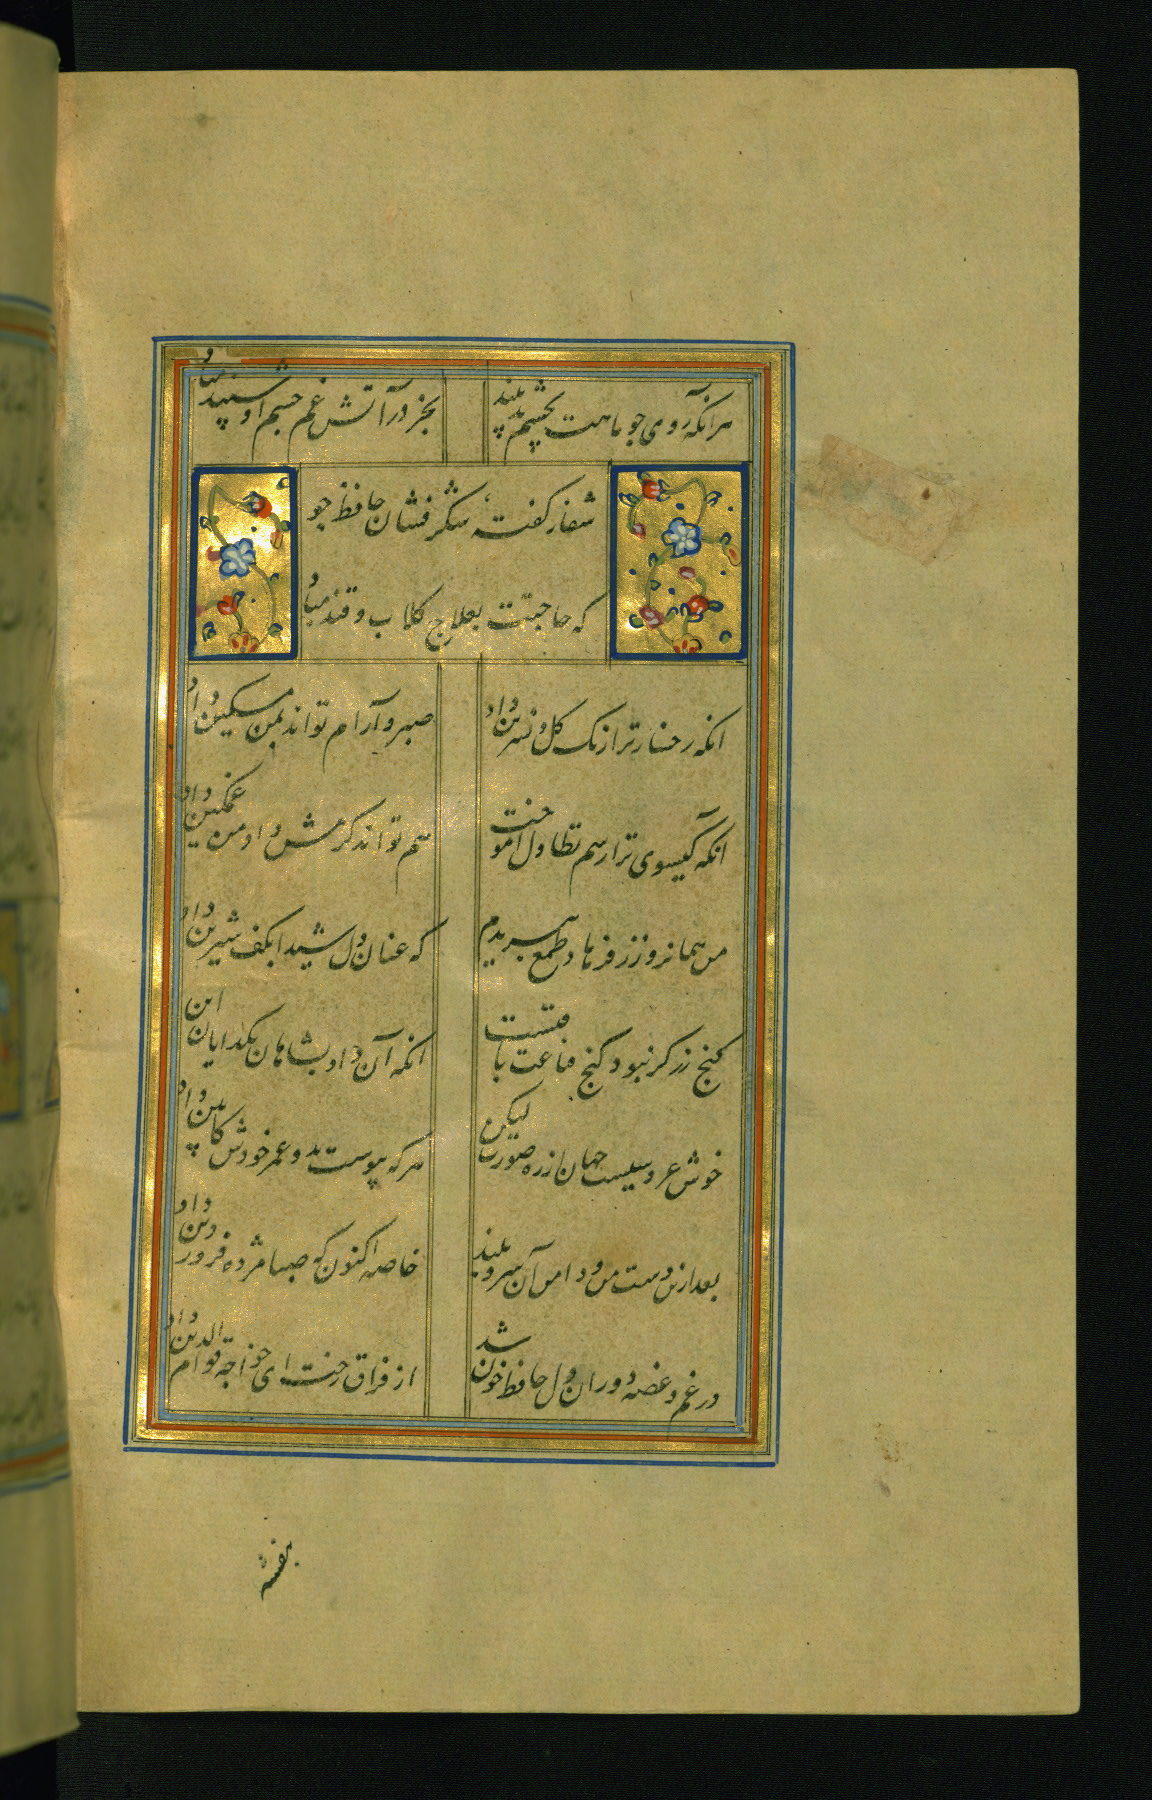 هر آنکه روی چو ماهت بچشم بد بیند
بجز در آتش غم چشم او سپند مباد
شفا ز گفتهٔ شکر فشان حافظ جو
که حاجتت بعلاج گلاب و قند مباد
انکه رخسار ترا رنک کل و نسرین داد
صبر و آرام تواند بمن مسکین داد
انکه گیسوی ترا رسم تطاول آموخت
هم تواند کرمش داد من غمگین داد
من همانروز ز فرهاد طمع ببریدم
که عنان دل شیدا بکف شیرین داد
کنج زر کر نبود کنج قناعت باقیست
انکه آن داد بشاهان بکدایان این
خوش عروسیست جهان از ره صورت لیکن
هر که پیوست بدو عمر خودش کابین داد
بعد ازین دست من و دامن آن سرو بلند
خاصه اکنون که صبا مژده فروردین داد
در غم و غصه دوران دل حافظ خون شد
از فراق رخت ای خواجه قوام الدین داد
بنفشه